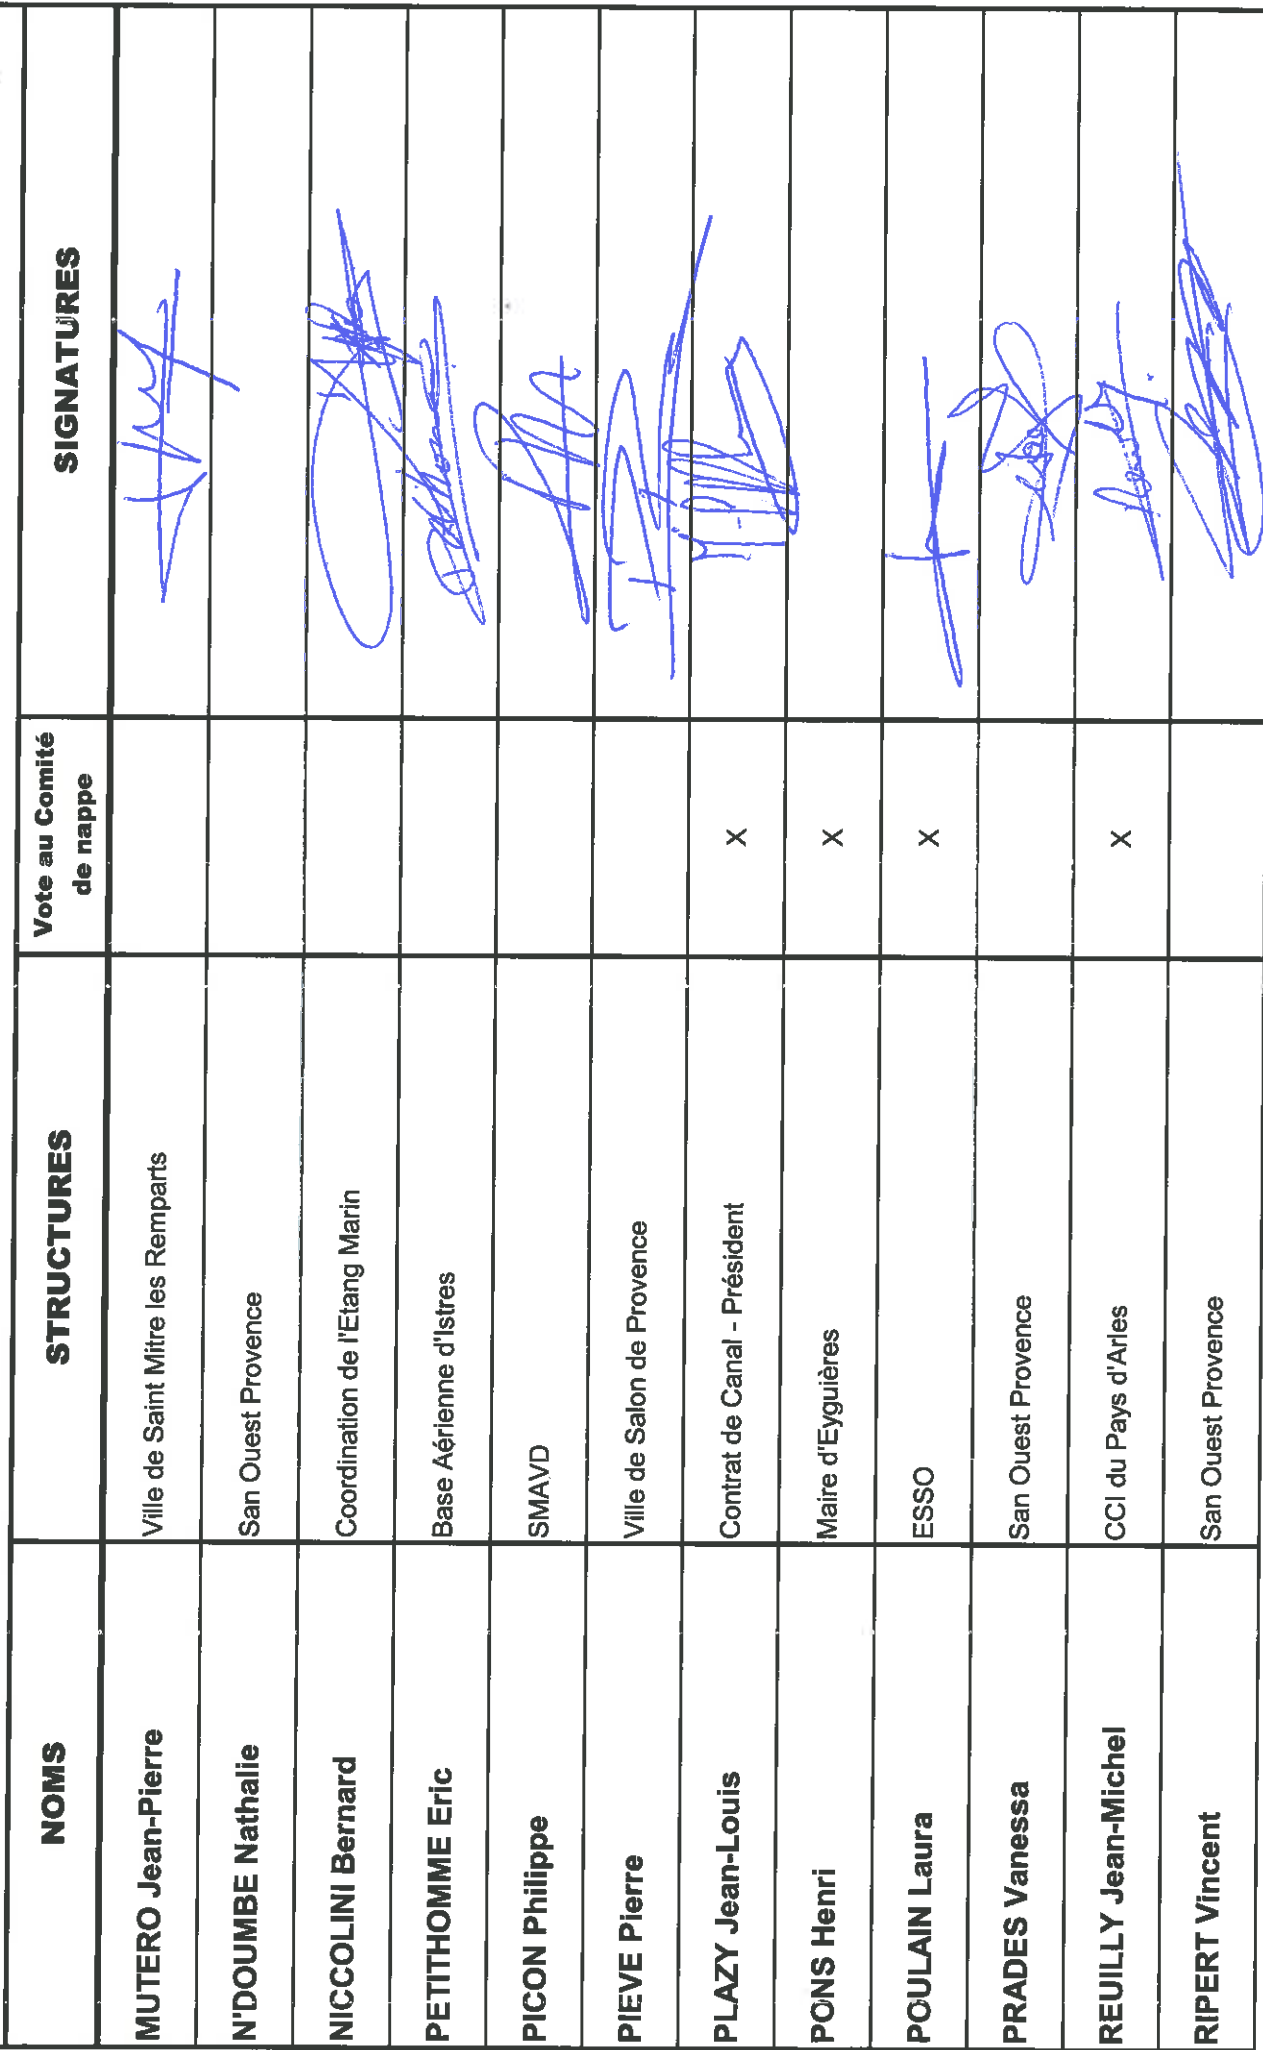 NOMS STRUCTURES Vote au Comité de nappe SIGNATURES
MUTERO Jean-Pierre Ville de Saint Mitre les Remparts
N'DOUMBE Nathalie San Ouest Provence
NICCOLINI Bernard Coordination de l'Etang Marin
PETITHOMME Eric Base Aérienne d'Istres
PICON Philippe SMAVD
PIEVE Pierre Ville de Salon de Provence
PLAZY Jean-Louis Contrat de Canal - Président X
PONS Henri Maire d'Eyguières X
POULAIN Laura ESSO X
PRADES Vanessa San Ouest Provence
REUILLY Jean-Michel CCI du Pays d'Arles X
RIPERT Vincent San Ouest Provence